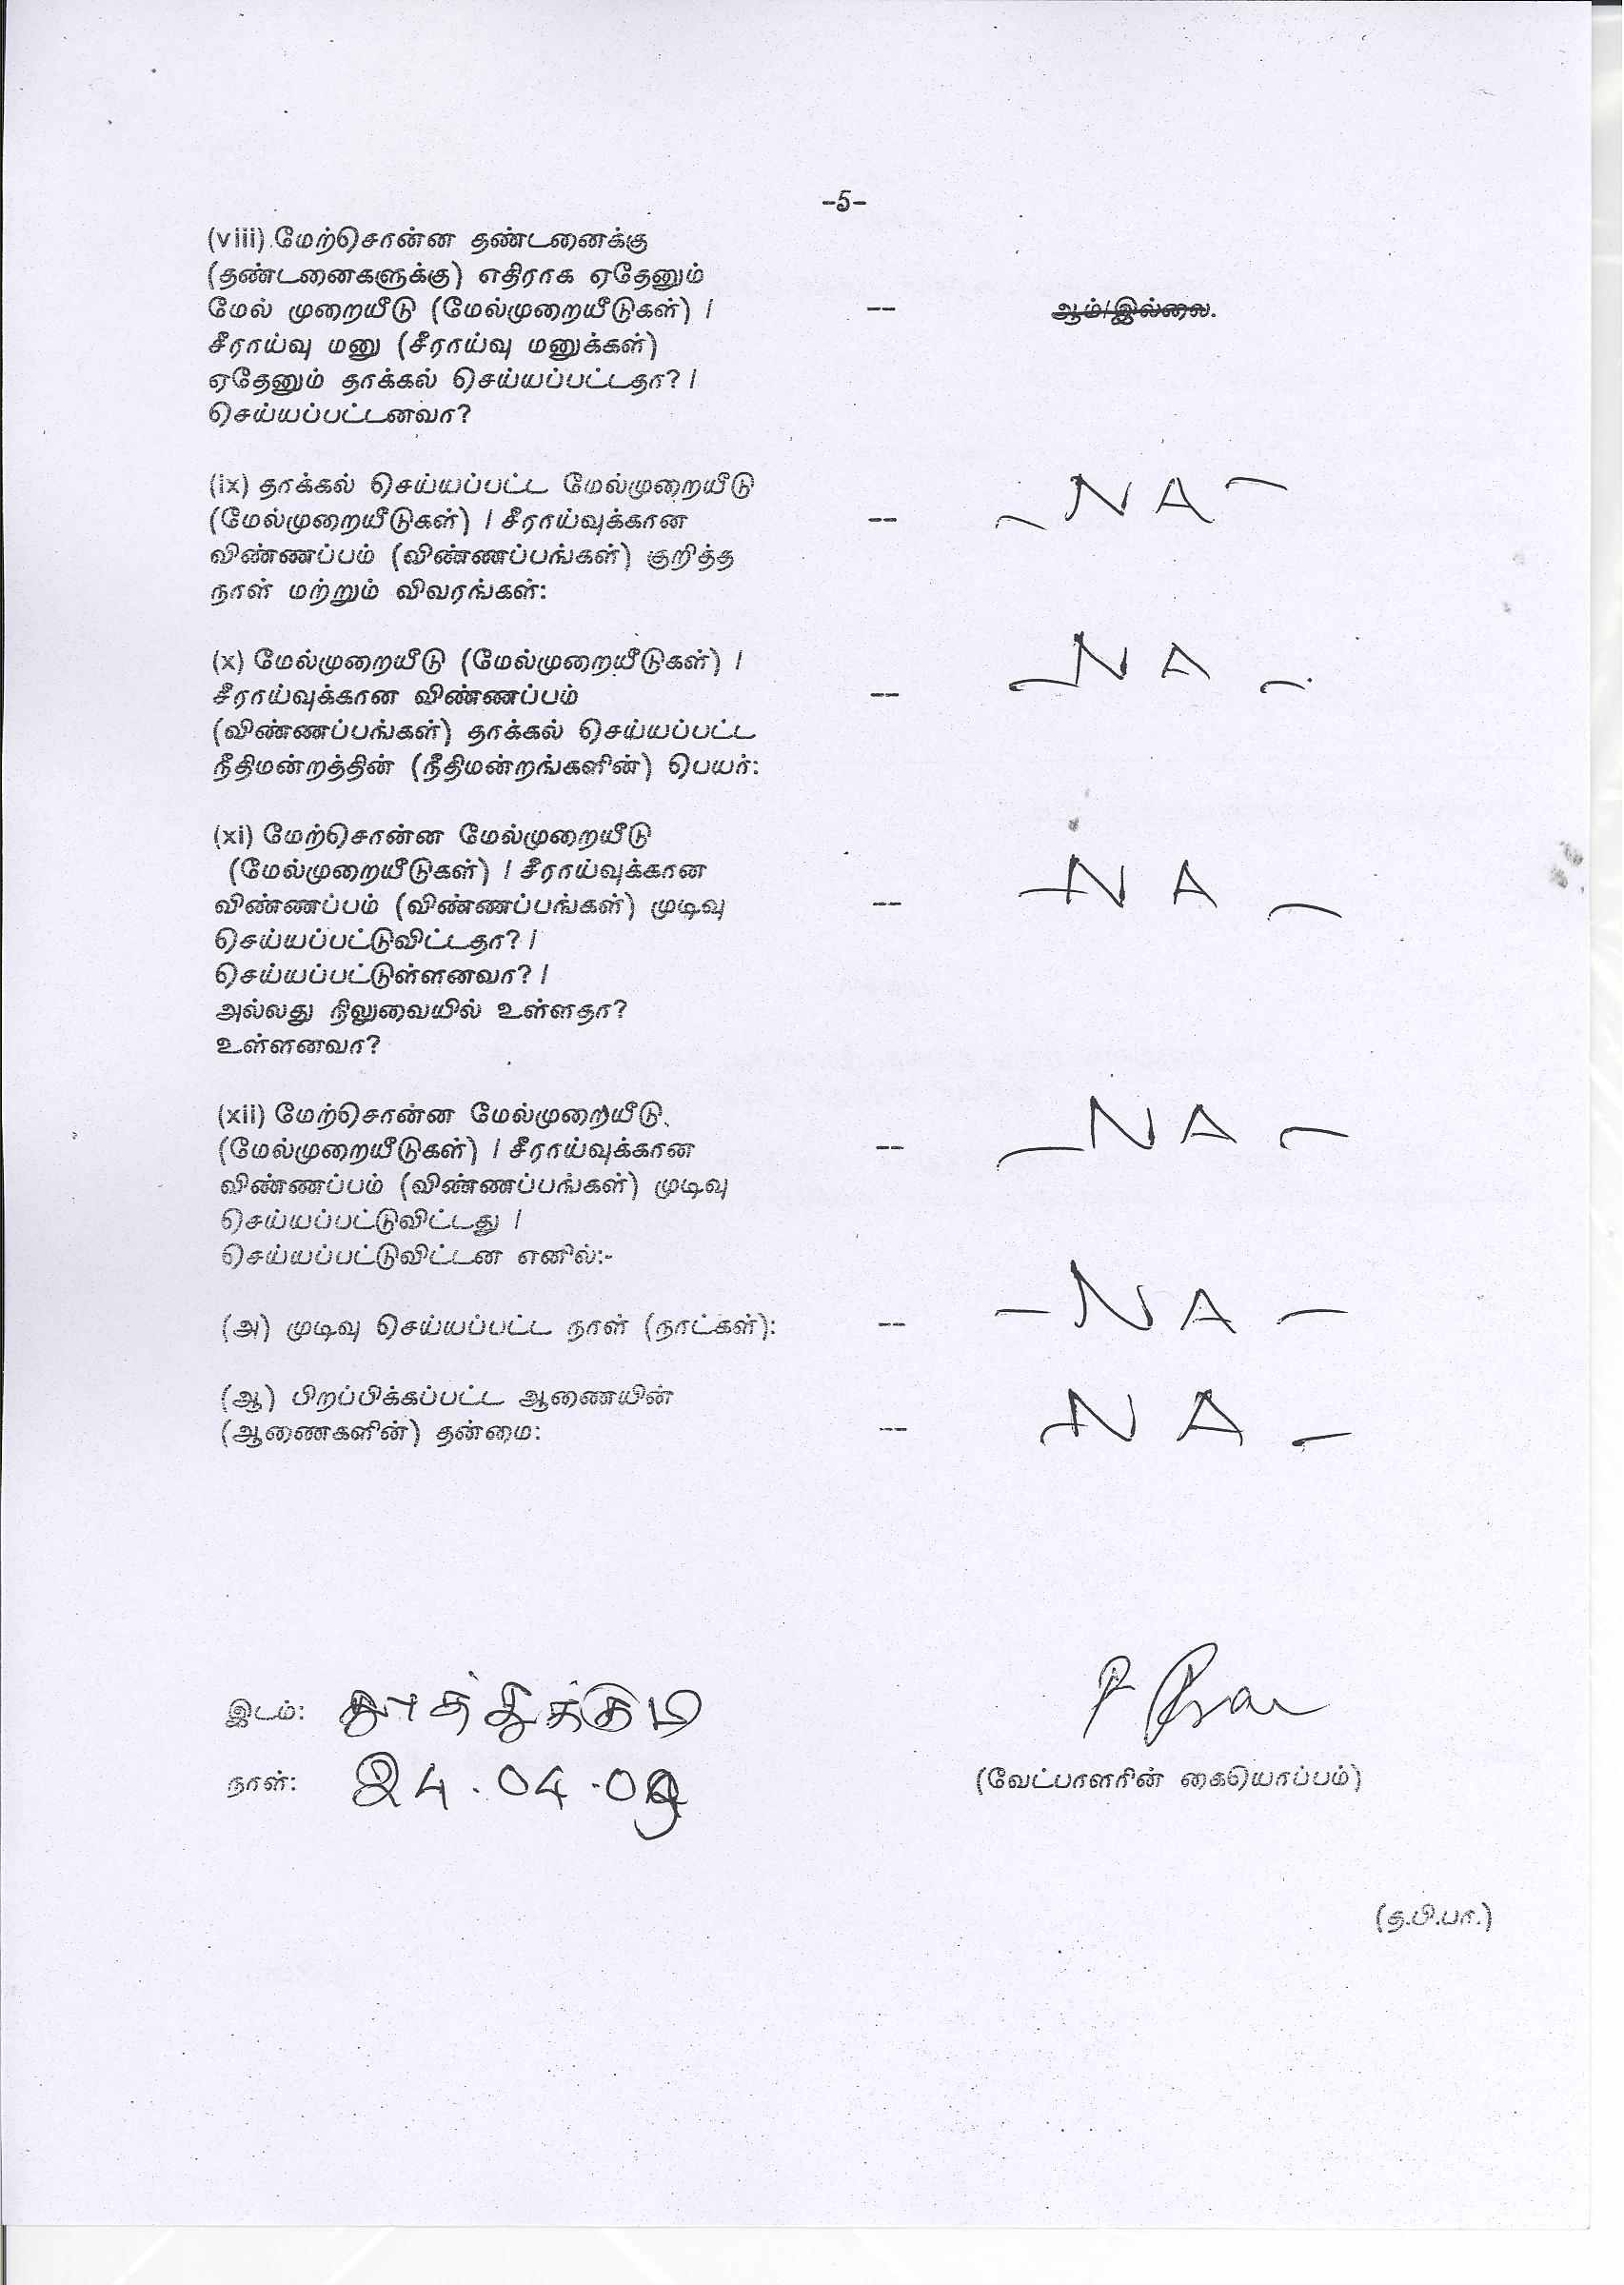 -5-
(viii) மேற்சொன்ன தண்டனைக்கு
(தண்டனைகளுக்கு) எதிராக ஏதேனும்
மேல் முறையீடு (மேல்முறையீடுகள்) / -- ஆம்/இல்லை.
சீராய்வு மனு (சீராய்வு மனுக்கள்)
ஏதேனும் தாக்கல் செய்யப்பட்டதா? /
செய்யப்பட்டனவா?
(ix) தாக்கல் செய்யப்பட்ட மேல்முறையீடு
(மேல்முறையீடுகள்) / சீராய்வுக்கான -- - NA -
விண்ணப்பம் (விண்ணப்பங்கள்) குறித்த
நாள் மற்றும் விவரங்கள்:
(x) மேல்முறையீடு (மேல்முறையீடுகள்) /
சீராய்வுக்கான விண்ணப்பம் -- - NA -
(விண்ணப்பங்கள்) தாக்கல் செய்யப்பட்ட
நீதிமன்றத்தின் (நீதிமன்றங்களின்) பெயர்:
(xi) மேற்சொன்ன மேல்முறையீடு
(மேல்முறையீடுகள்) / சீராய்வுக்கான
விண்ணப்பம் (விண்ணப்பங்கள்) முடிவு -- - NA -
செய்யப்பட்டுவிட்டதா? /
செய்யப்பட்டுள்ளனவா? /
அல்லது நிலுவையில் உள்ளதா?
உள்ளனவா?
(xii) மேற்சொன்ன மேல்முறையீடு
(மேல்முறையீடுகள்) / சீராய்வுக்கான -- - NA -
விண்ணப்பம் (விண்ணப்பங்கள்) முடிவு
செய்யப்பட்டுவிட்டது /
செய்யப்பட்டுவிட்டன எனில்:-
(அ) முடிவு செய்யப்பட்ட நாள் (நாட்கள்): -- - NA -
(ஆ) பிறப்பிக்கப்பட்ட ஆணையின்
(ஆணைகளின்) தன்மை: -- - NA -
இடம்: தூத்துக்குடி
நாள்: 24.04.09 (வேட்பாளரின் கையொப்பம்)
(த.பி.பா.)